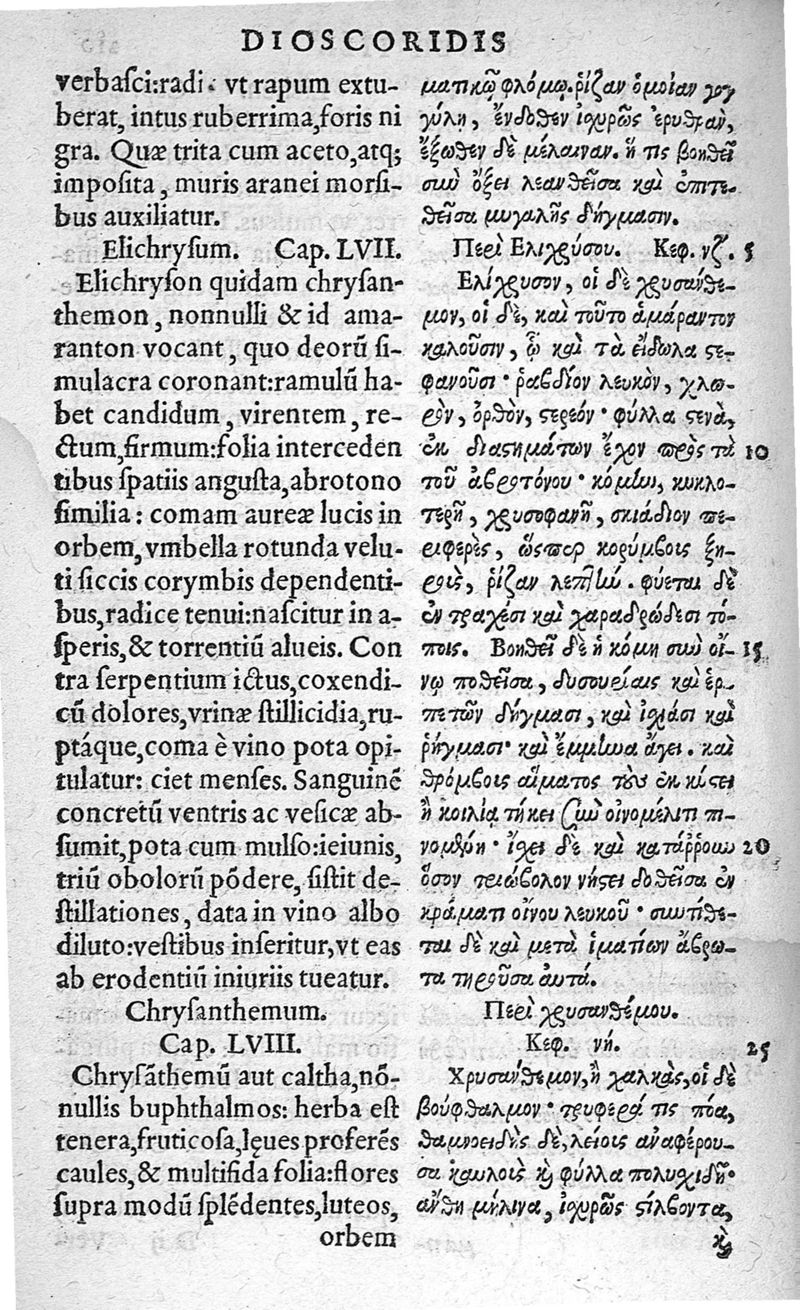 DIOSCORIDIS
verbaſci: radi. vt rapum extu-
berat, intus ruberrima, foris ni
gra. Quæ trita cum aceto, atq;
impoſita, muris aranei morſi-
bus auxiliatur.
Elichryſum. Cap. LVII.
Elichryſon quidam chryſan-
themon, nonnulli & id ama-
ranton vocant, quo deorũ ſi-
mulacra coronant: ramulũ ha-
bet candidum, virentem, re-
ctum, firmum: folia interceden
tibus ſpatiis anguſta, abrotono
ſimilia: comam aureæ lucis in
orbem, vmbella rotunda velu-
ti ſiccis corymbis dependenti-
bus, radice tenui: naſcitur in a-
ſperis, & torrentiũ alueis. Con
tra ſerpentium ictus, coxendi-
cũ dolores, vrinæ ſtillicidia, ru-
ptáque, coma è vino pota opi-
tulatur: ciet menſes. Sanguinẽ
concretũ ventris ac veſicæ ab-
ſumit, pota cum mulſo: ieiunis,
triũ obolorũ põdere, ſiſtit de-
ſtillationes, data in vino albo
diluto: veſtibus inſeritur, vt eas
ab erodentiũ iniuriis tueatur.
Chryſanthemum.
Cap. LVIII.
Chryſãthemũ aut caltha, nõ-
nullis buphthalmos: herba eſt
tenera, fruticoſa, lęues proferẽs
caules, & multifida folia: flores
ſupra modũ ſplẽdentes, luteos,
orbem
ματικῷ φλόμῳ. ῥίζαν ὁμοίαν γογ
γύλῃ, ἔνδοθεν ἰσχυρῶς ἐρυθρὰν,
ἔξωθεν δὲ μέλαιναν. ἥ τις βοηθεῖ
σὺν ὄξει λεανθεῖσα καὶ ἐπιτε-
θεῖσα μυγαλῆς δήγμασιν.
Περὶ Ελιχρύσου. Κεφ. νζʹ. 5
Ελίχρυσον, οἱ δὲ χρυσάνθε-
μον, οἱ δὲ, καὶ τοῦτο ἀμάραντον
καλοῦσιν, ᾧ καὶ τὰ εἴδωλα στε-
φανοῦσι· ῥαβδίον λευκὸν, χλω-
ρὸν, ὀρθὸν, στερεόν· φύλλα στενὰ,
ἐκ διαστημάτων ἔχον πρὸς τὰ 10
τοῦ ἀβροτόνου· κόμην, κυκλο-
τερῆ, χρυσοφανῆ, σκιάδιον πε-
ριφερὲς, ὥσπερ κορύμβοις ξη-
ροῖς, ῥίζαν λεπτήν. φύεται δὲ
ἐν τραχέσι καὶ χαραδρώδεσι τό-
ποις. Βοηθεῖ δὲ ἡ κόμη σὺν οἴ- 15
νῳ ποθεῖσα, δυσουρίαις καὶ ἑρ-
πετῶν δήγμασι, καὶ ἰσχιάσι καὶ
ῥήγμασι· καὶ ἔμμηνα ἄγει. καὶ
θρόμβους αἵματος τοὺς ἐν κύστει
ἢ κοιλίᾳ τήκει σὺν οἰνομέλιτι πι-
νομένη· ἴσχει δὲ καὶ κατάῤῥουν 20
ὅσον τριώβολον νήστει δοθεῖσα ἐν
κράματι οἴνου λευκοῦ· συντίθε-
ται δὲ καὶ μετὰ ἱματίων ἄβρω-
τα τηροῦσα αὐτά.
Περὶ χρυσανθέμου.
Κεφ. νή. 25
Χρυσάνθεμον, ἢ χαλκὰς, οἱ δὲ
βούφθαλμον· τρυφερά τις πόα,
θαμνοειδὴς δὲ, λείους ἀναφέρου-
σα καυλοὺς καὶ φύλλα πολυσχιδῆ·
ἄνθη μήλινα, ἰσχυρῶς στίλβοντα,
καὶ